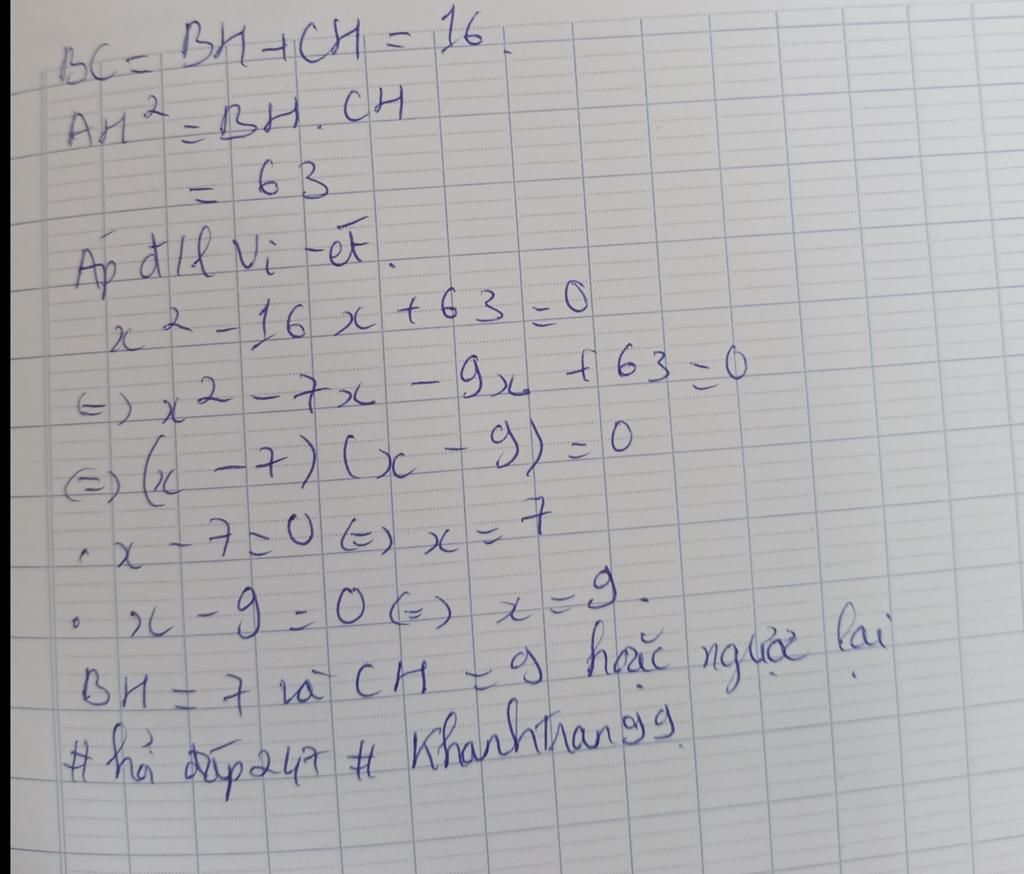 BC = BH + CH = 16.
AH² = BH. CH
= 63
Áp đ/l Vi-ét.
x² - 16x + 63 = 0
(=) x² - 7x - 9x + 63 = 0
(=) (x - 7) (x - 9) = 0
. x - 7 = 0 (=) x = 7
. x - 9 = 0 (=) x = 9.
BH = 7 và CH = 9 hoặc ngược lại
# hỏi đáp247 # Khanhthan99